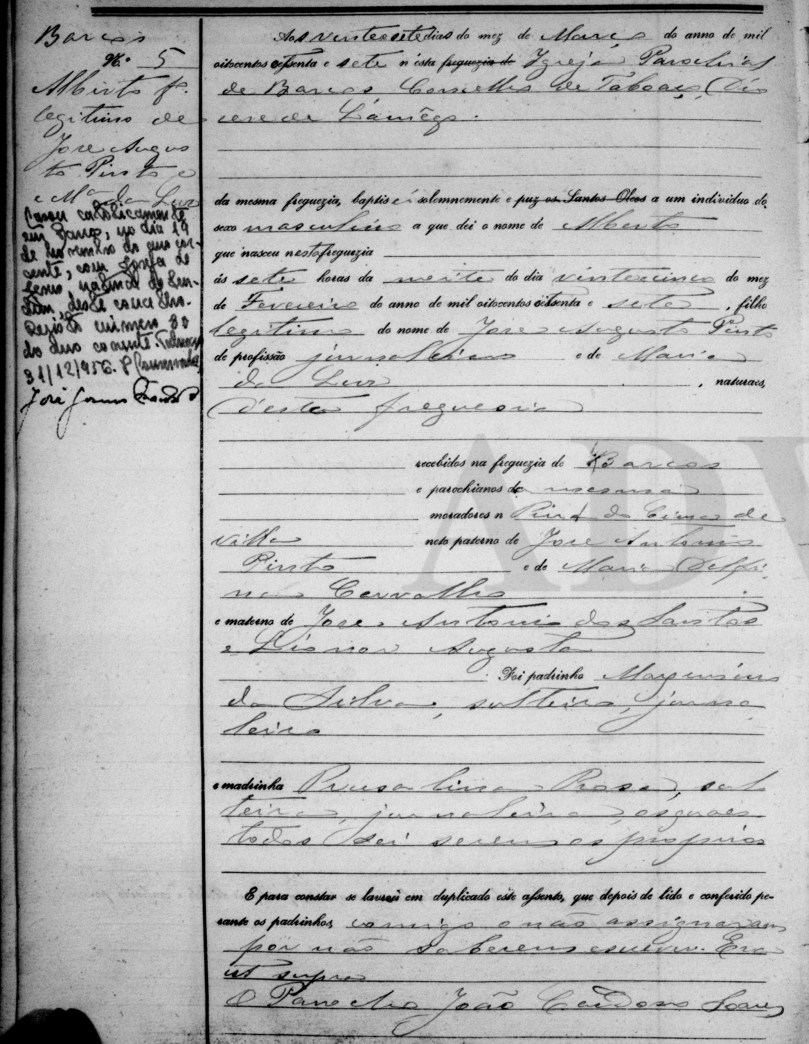 Barcos
Nº 5
Alberto fº
legitimo de
Jose Augus
to Pinto e
e Mª da Luz
Casou catolicamente
em Barcos, no dia 19
de novembro do ano cor-
rente, com
natural de
deste concelho.
Registo numero 30
do ano corrente
31/12/956.
José
Aos vinte e sete dias do mez de Março do anno de mil
oitocentos oitenta e sete n'esta freguezia de Igreja Parochial
de Barcos Concelho de Taboaço, Dio
cese de Lamêgo.
da mesma freguezia, baptisei solemnemente e puz os Santos Oleos a um individuo do
sexo masculino a que dei o nome de Alberto
que nasceu nesta freguezia
ás sete horas da noite do dia vinte e cinco do mez
de Fevereiro do anno de mil oitocentos oitenta e sete, filho
legitimo do nome de Jose Augusto Pinto
de profissão jornaleiro e de Maria
da Luz, naturaes,
d'esta freguesia
recebidos na freguezia de Barcos
e parochianos da mesma
moradores n de Cima de
Villa neto paterno de Jose Antonio
Pinto e de Maria Delfi
na Carvalho
e materno de Jose Antonio dos Santos
e Lianor Augusta
Foi padrinho
da Silva, solteiro, jorna
leiro
e madrinha Rosa, sol
teira, jornaleira, os quaes
todos sei serem os proprios
E para constar se lavrou em duplicado este assento, que depois de lido e conferido pe-
rante os padrinhos, comigo o não assignaram
por não saberem escrever. Era
ut supra
O Parocho João Cardoso Soares
ADV